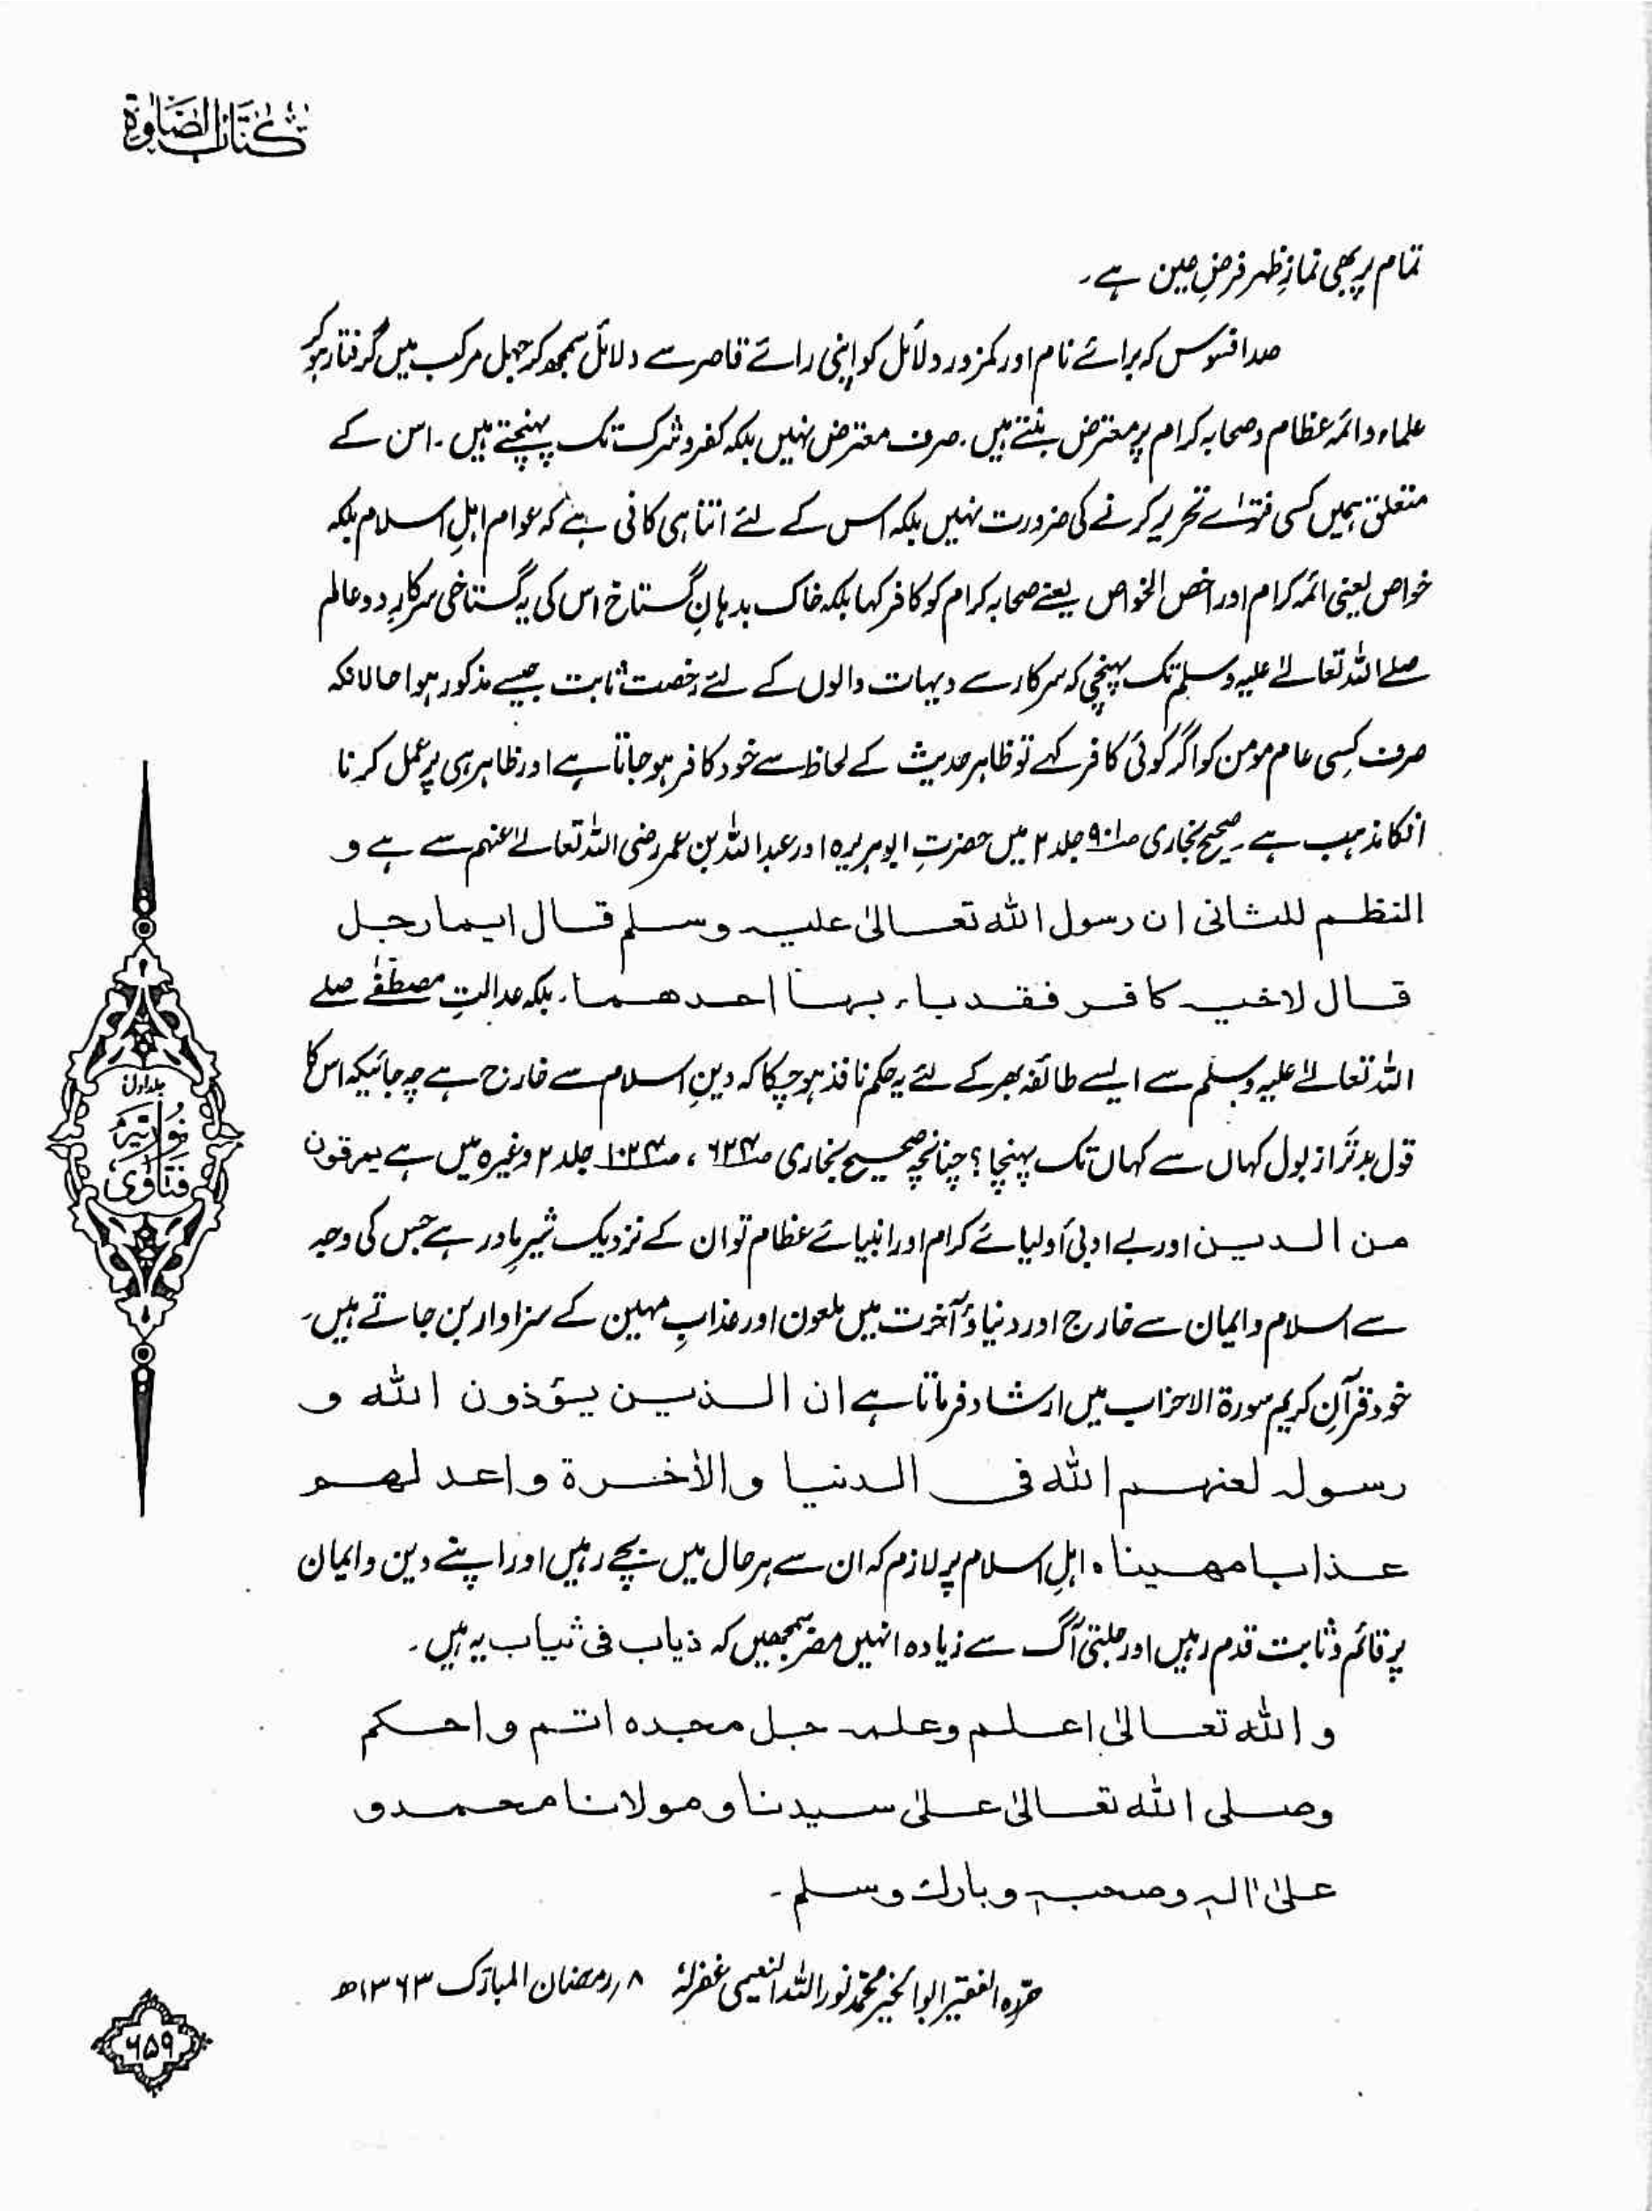 كتاب الصلوة
تمام پر بھی نمازِ ظہر فرضِ عین ہے۔
صد افسوس کہ برائے نام اور کمزور دلائل کو اپنی رائے قاصر سے دلائل سمجھ کر جہل مرکب میں گرفتار ہو کر
علماء و ائمہ عظام و صحابہ کرام پر معترض بنتے ہیں۔ صرف معترض نہیں بلکہ کفر و شرک تک پہنچتے ہیں۔ اس کے
متعلق ہمیں کسی فتوٰے تحریر کرنے کی ضرورت نہیں بلکہ اس کے لئے اتنا ہی کافی ہے کہ عوام اہلِ اسلام بلکہ
خواص یعنی ائمہ کرام اور اخص الخواص یعنے صحابہ کرام کو کافر کہا بلکہ خاک بدہانِ گستاخ اس کی یہ گستاخی سرکارِ دو عالم
صلے اللہ تعالےٰ علیہ وسلم تک پہنچی کہ سرکار سے دیہات والوں کے لئے رخصت ثابت جیسے مذکور ہوا حالانکہ
صرف کسی عام مومن کو اگر کوئی کافر کہے تو ظاہر حدیث کے لحاظ سے خود کافر ہو جاتا ہے اور ظاہر ہی پر عمل کرنا
انکا مذہب ہے۔ صحیح بخاری ص۹۰۱ جلد ۲ میں حضرتِ ابوہریرہ اور عبداللہ بن عمر رضی اللہ تعالےٰ عنہم سے ہے و
النظم للثانی ان رسول اللہ تعالیٰ علیہ وسلم قال ایما رجل
قال لاخیہ کافر فقد باء بہا احدھما۔ بلکہ عدالتِ مصطفٰے صلے
اللہ تعالےٰ علیہ وسلم سے ایسے طائفہ بھر کے لئے یہ حکم نافذ ہو چکا کہ دینِ اسلام سے خارج ہے چہ جائیکہ اس کا
قول بدتر از بول کہاں سے کہاں تک پہنچا؟ چنانچہ صحیح بخاری ص۶۲۴، ص۱۰۲۴ جلد ۲ وغیرہ میں ہے یمرقون
من الدین اور بے ادبی اولیائے کرام اور انبیائے عظام تو ان کے نزدیک شیرِ مادر ہے جس کی وجہ
سے اسلام و ایمان سے خارج اور دنیا و آخرت میں ملعون اور عذابِ مہین کے سزاوار بن جاتے ہیں۔
خود قرآنِ کریم سورۃ الاحزاب میں ارشاد فرماتا ہے ان الذین یؤذون اللہ و
رسولہ لعنہم اللہ فی الدنیا والاٰخرۃ واعد لھم
عذابا مھینا ہ اہلِ اسلام پر لازم کہ ان سے ہر حال میں بچے رہیں اور اپنے دین و ایمان
پر قائم و ثابت قدم رہیں اور جلتی آگ سے زیادہ انہیں مضر سمجھیں کہ ذیاب فی ثیاب یہ ہیں۔
واللہ تعالیٰ اعلم وعلمہ جل مجدہ اتم واحکم
وصلی اللہ تعالیٰ علیٰ سیدنا ومولانا محمد و
علیٰ اٰلہٖ وصحبہٖ وبارك وسلم۔
حررہ الفقیر ابوالخیر محمد نور اللہ النعیمی غفرلہٗ ۸ رمضان المبارک ۱۳۶۳ھ
جلد اول
نوریہ
فتاوٰی
۶۵۹